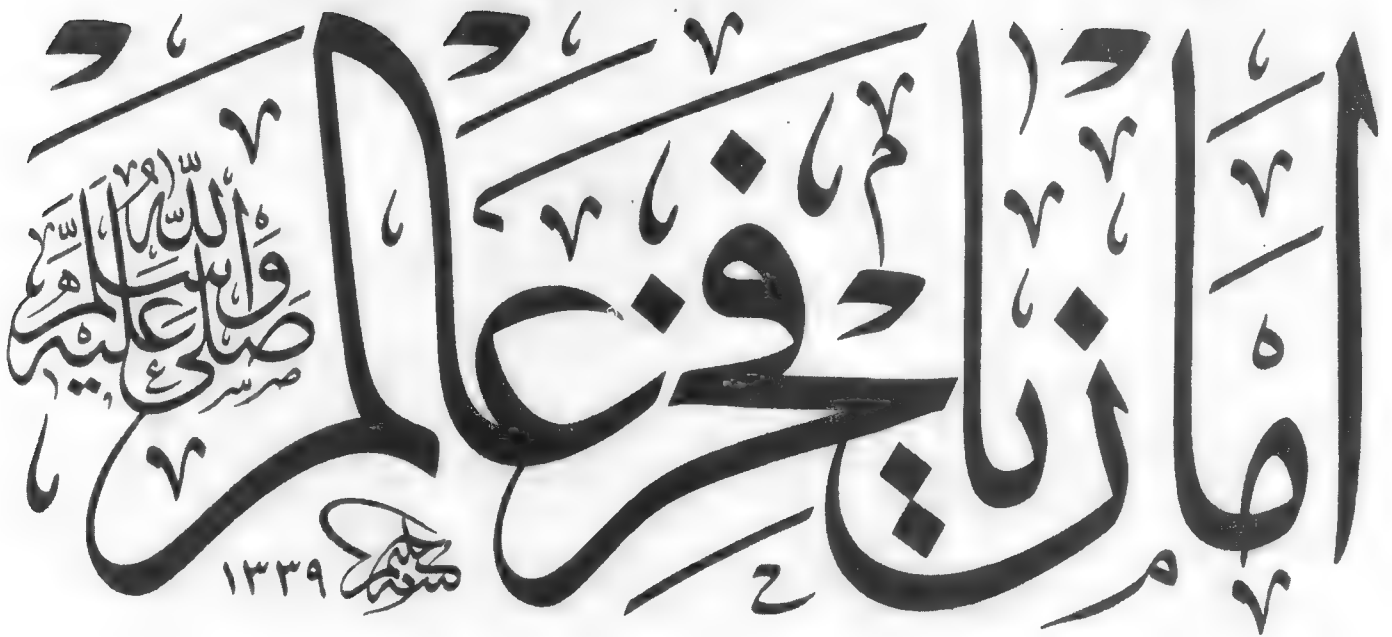 امان یا فخر عالم
صلى الله عليه وسلم
١٣٣٩